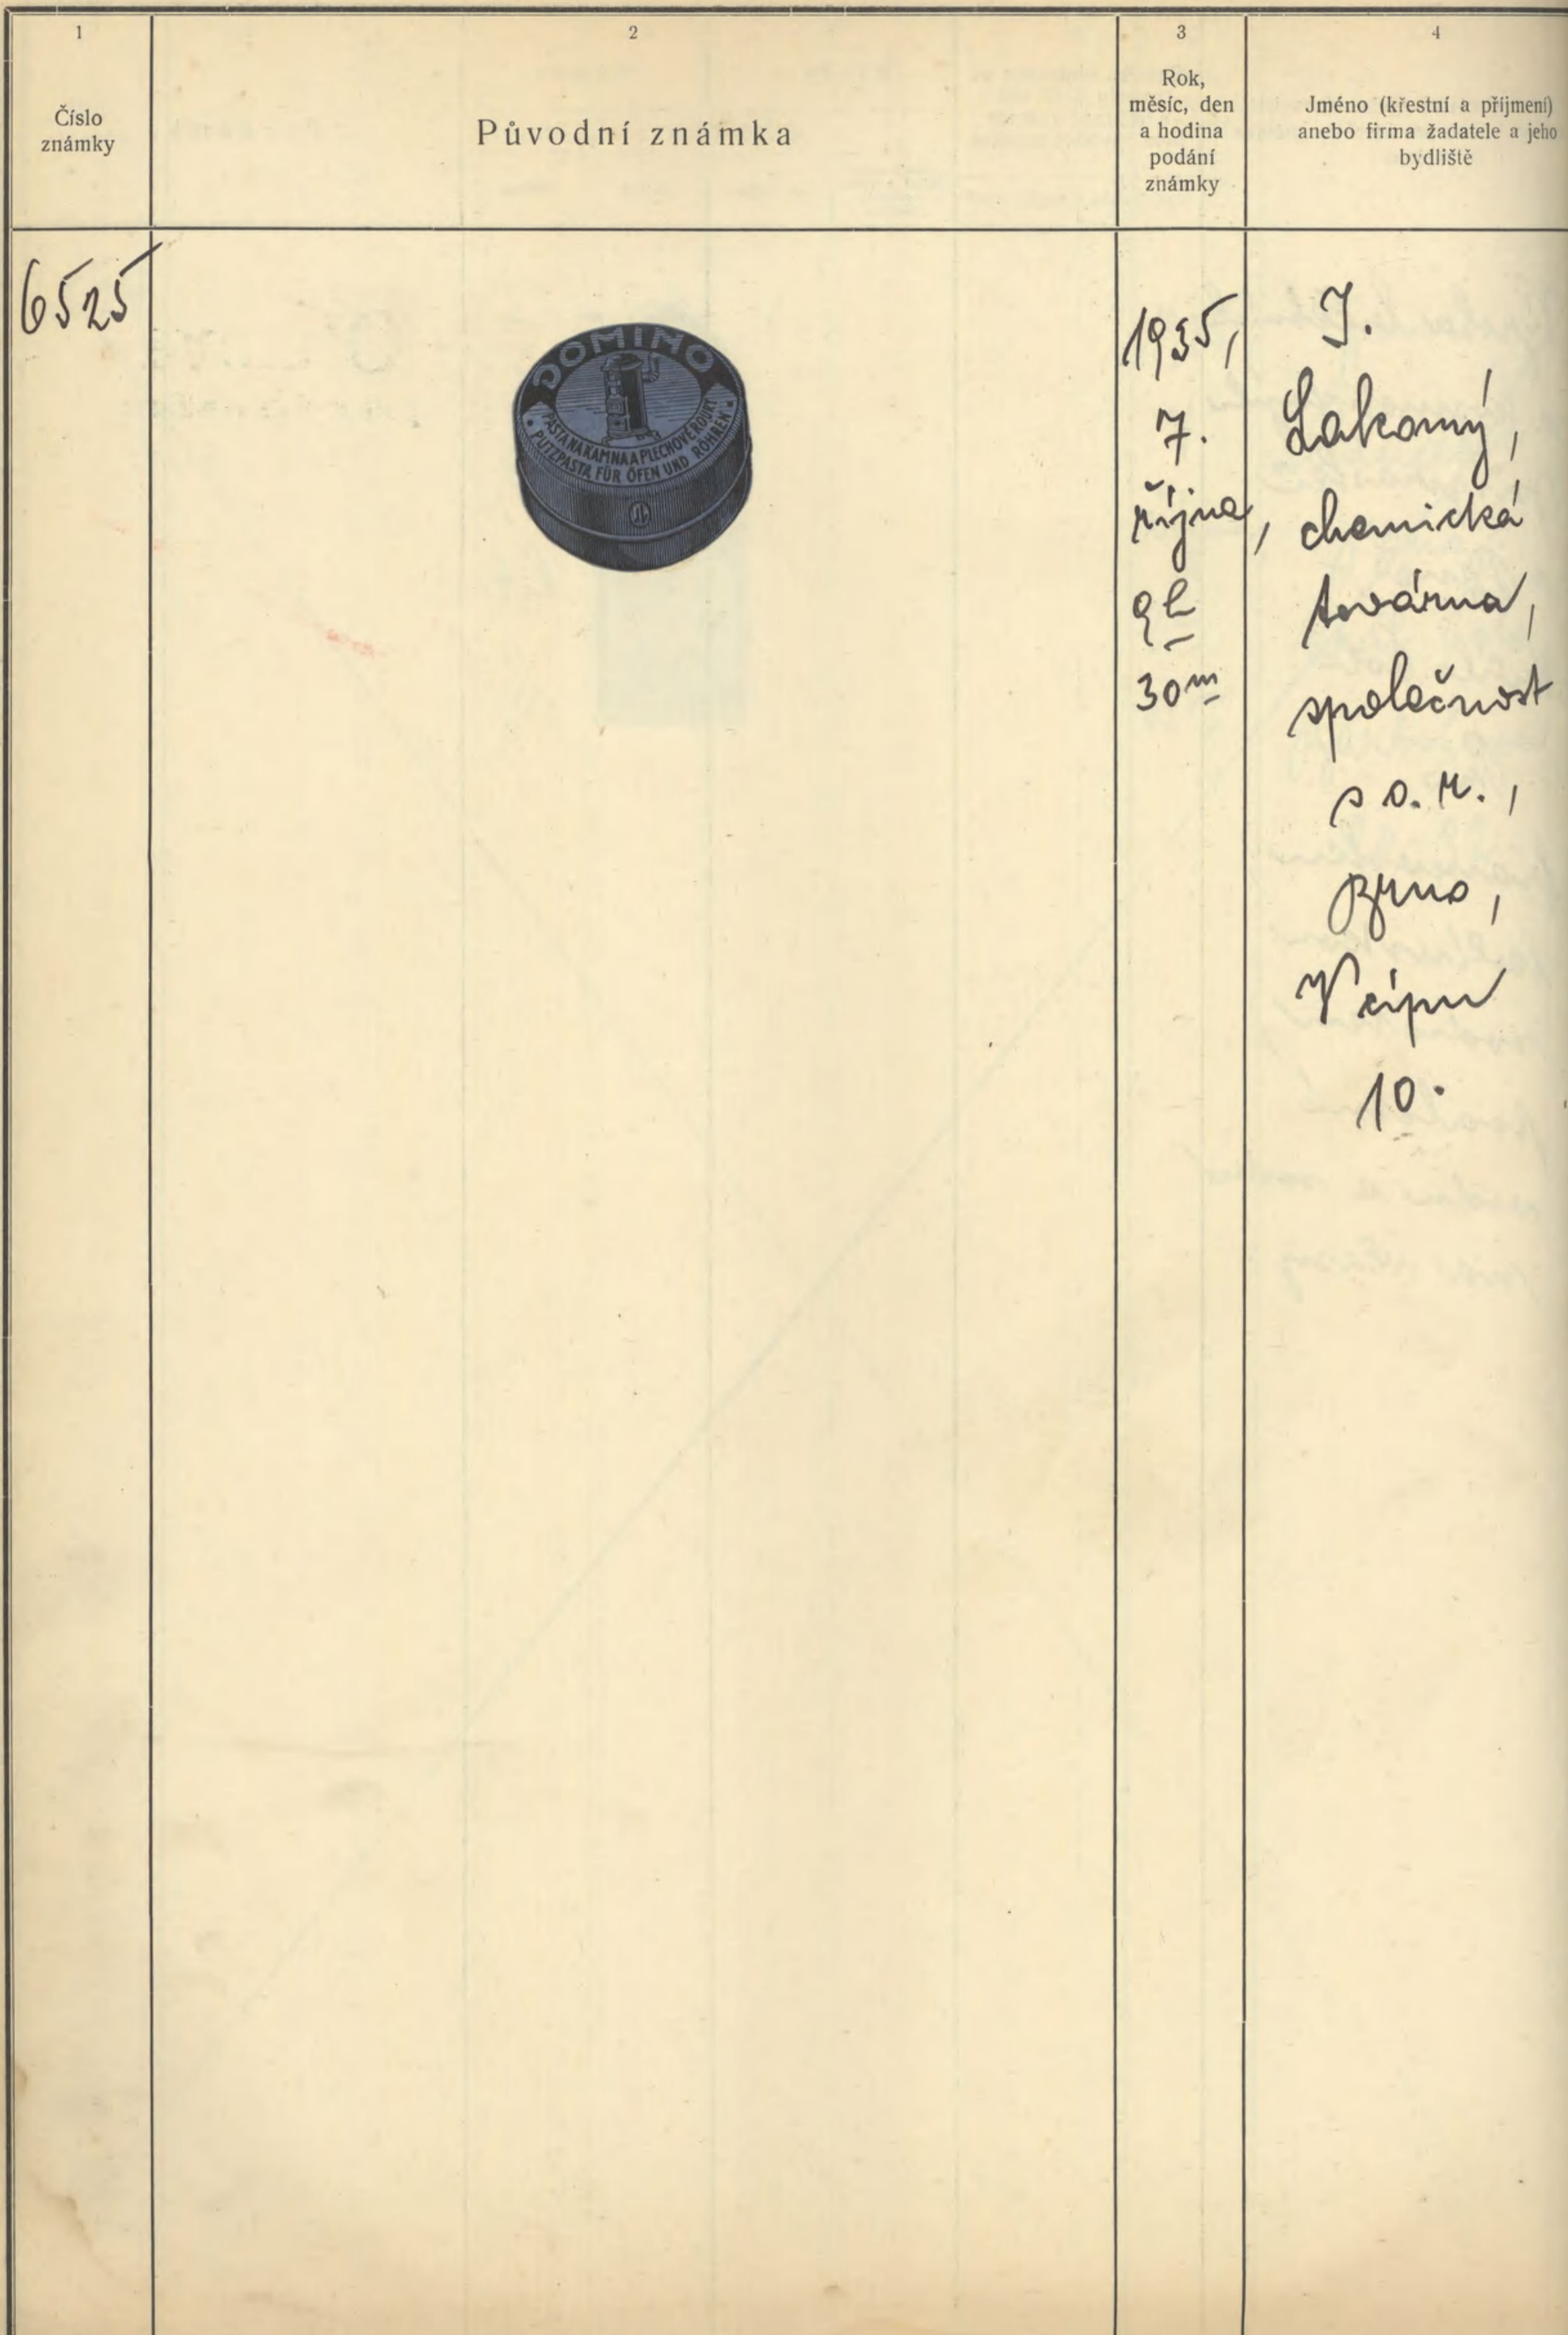 1
Číslo
známky
2
Původní známka
3
Rok,
měsíc, den
a hodina
podání
známky
4
Jméno (křestní a příjmení)
anebo firma žadatele a jeho
bydliště
6525
DOMINO
PASTA NA KAMNA A PLECHOVÉ ROURY
PUTZPASTA FÜR ÖFEN UND RÖHREN
1935,
7.
října,
9h
30m
J.
Lakomý,
chemická
továrna,
společnost
s o. r.,
Brno,
V cípu
10.